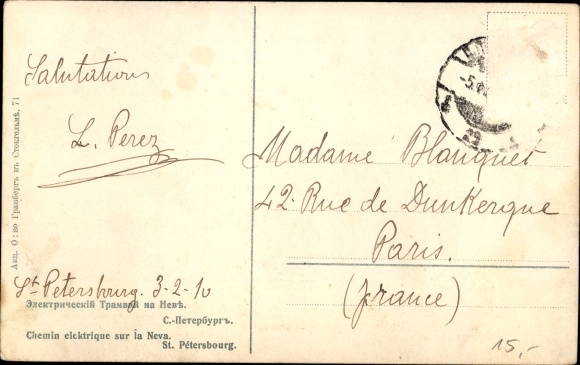 Salutations
L. Perez
St Petersburg 3-2-10
Электрическій Трамвай на Невѣ.
С.-Петербургъ.
Chemin elcktrique sur la Neva.
St. Pétersbourg.
Акц. О:во Гранбергъ въ Стокгольмѣ, 71
Madame Blanquet
42. Rue de Dunkerque
Paris.
(France)
15,-